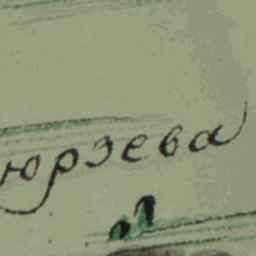 юрзева